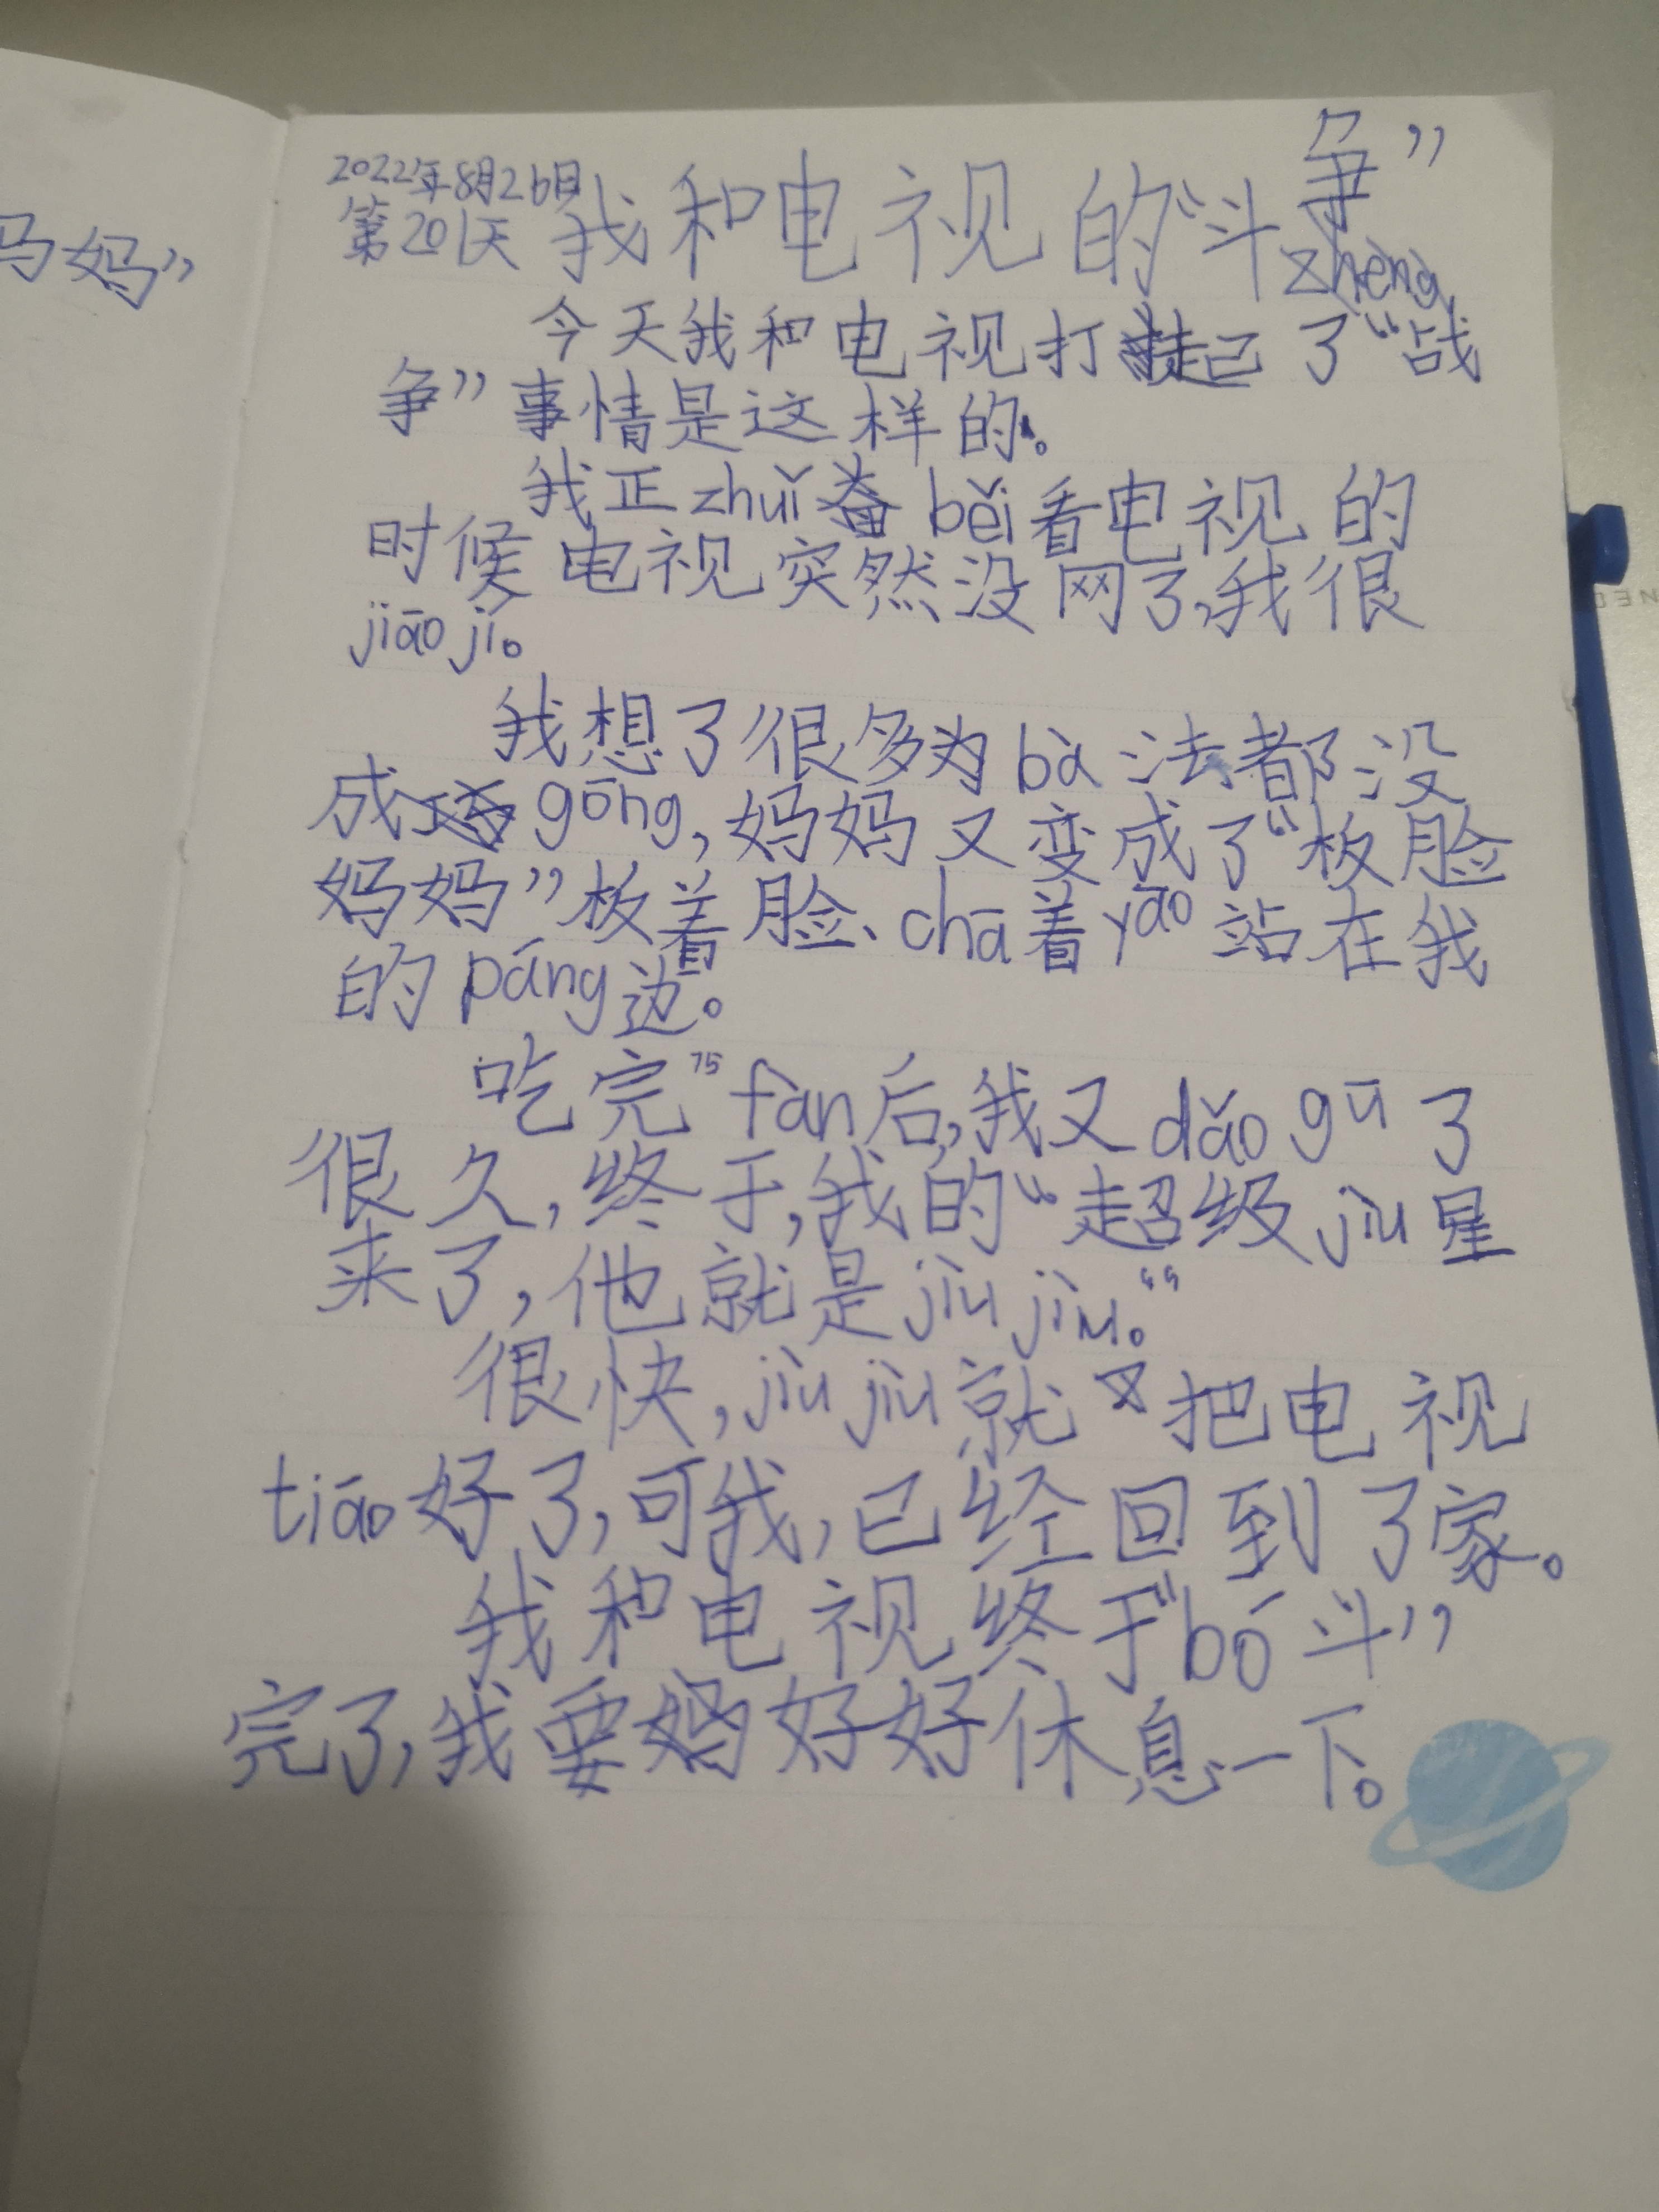 妈妈”
2022年8月26日
第201天 我和电视的“斗争”
zhèng
今天我和电视打起了“战
争”事情是这样的。
我正zhuǐ备běi看电视的
时候电视突然没网了,我很
jiāo jí。
我想了很多为bà法都没
成gōng,妈妈又变成了“板脸
妈妈”板着脸、chā着yāo站在我
的páng边。
吃完fàn后,我又dǎo gū了
很久,终于,我的“超级jiù星
来了,他就是jiù jiù。“
很快,jiù jiù就把电视
tiāo好了,可我,已经回到了家。
我和电视终于“bō斗”
完了,我要好好休息一下。